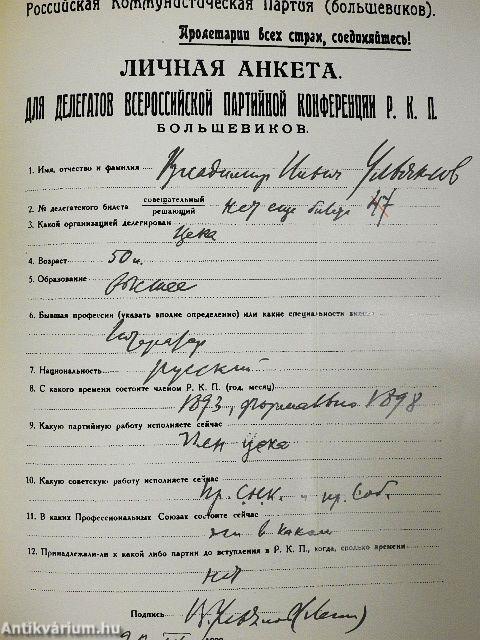 Российская Коммунистическая Партия (большевиков).
Пролетарии всех стран, соединяйтесь!
ЛИЧНАЯ АНКЕТА.
ДЛЯ ДЕЛЕГАТОВ ВСЕРОССИЙСКОЙ ПАРТИЙНОЙ КОНФЕРЕНЦИИ Р. К. П.
БОЛЬШЕВИКОВ.
1. Имя, отчество и фамилия Владимир Ильич Ульянов
2. № делегатского билета совещательный нет еще билета 47
решающий
3. Какой организацией делегирован
Цека
4. Возраст 50 л.
5. Образование
высшее
6. Бывшая профессия (указать вполне определенно) или какие специальности
литератор
7. Национальность русский
8. С какого времени состоите членом Р. К. П. (год, месяц)
1893, формально 1898
9. Какую партийную работу исполняете сейчас
Член цека
10. Какую советскую работу исполняете сейчас
пр. С.Н.К. и пр. Соб.
11. В каких Профессиональных Союзах состоите сейчас
ни в каком
12. Принадлежали-ли к какой либо партии до вступления в Р. К. П., когда, сколько времени
нет
Подпись В. Ульянов (Ленин)
Antikvárium.hu